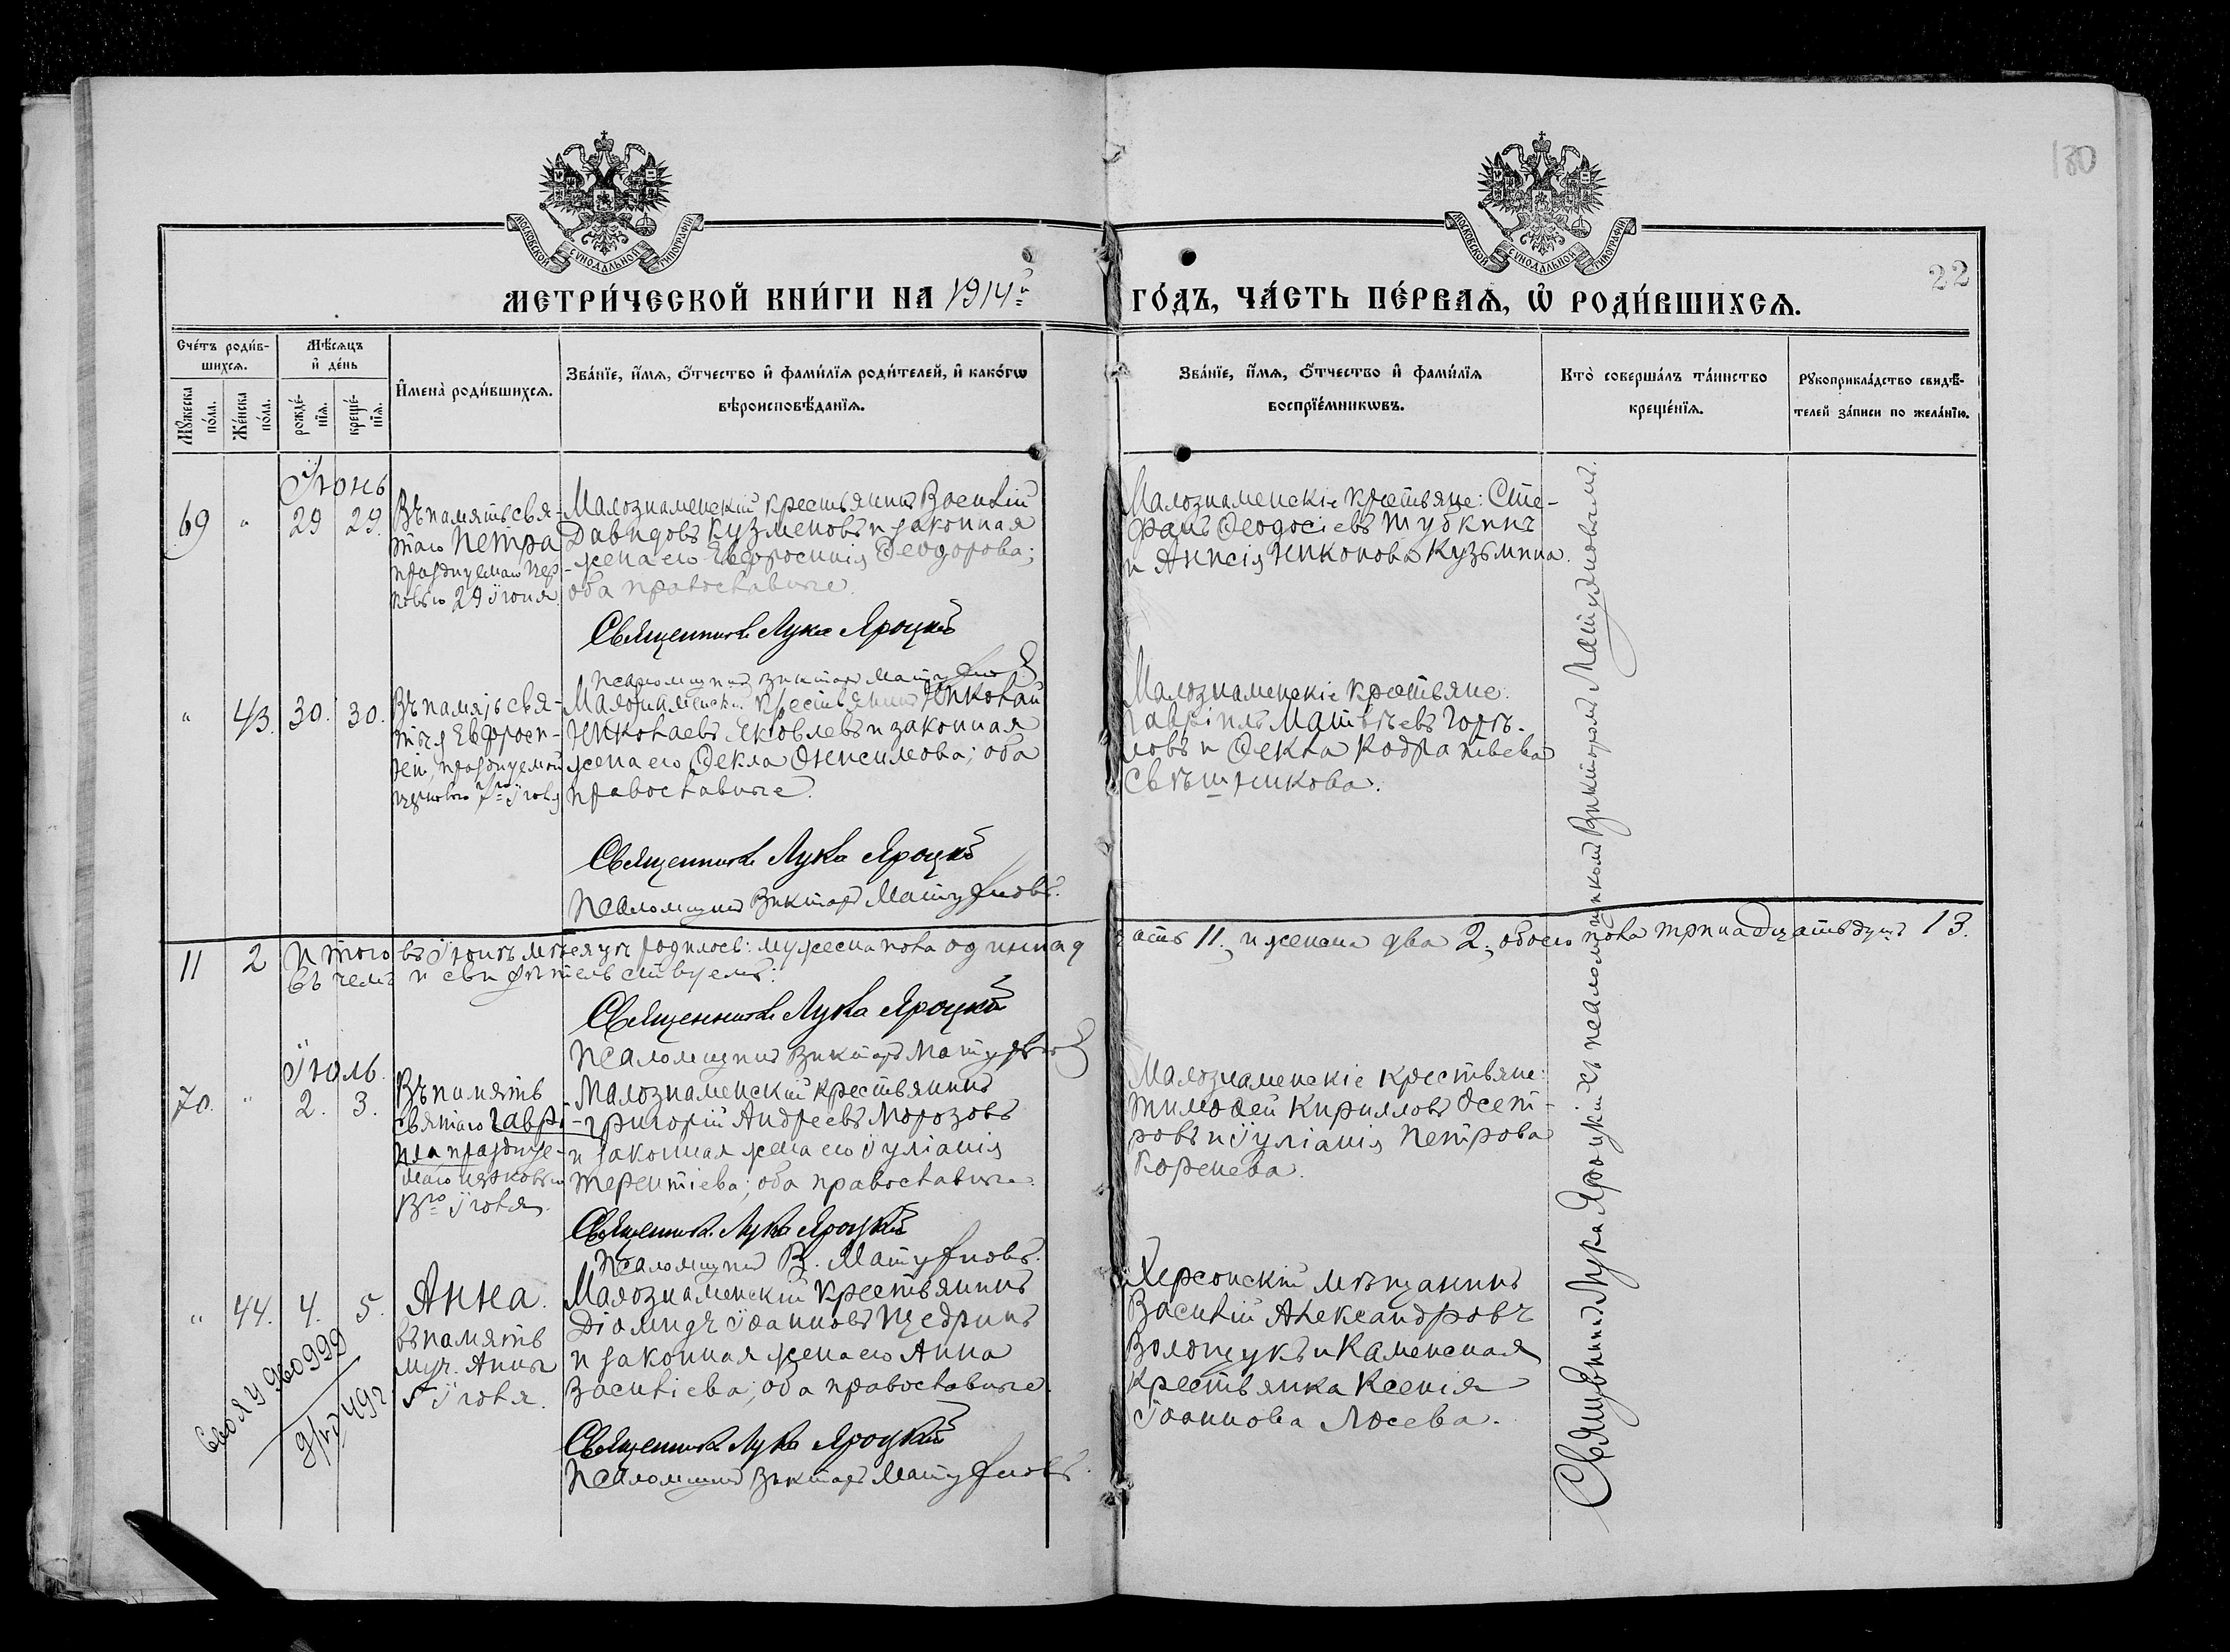 130
МОСКОВСКОЙ СУНОДАЛЬНОЙ ТИПОГРАФІИ
МОСКОВСКОЙ СУНОДАЛЬНОЙ ТИПОГРАФІИ
22
МЕТРИ́ЧЕСКОЙ КНИ́ГИ НА 1914й ГО́ДЪ, ЧА́СТЬ ПЕ́РВАѦ, Ѡ҆ РОДИ́ВШИХСѦ.
Сче́тъ роди́в-
шихсѧ.
Мꙋжеска по́ла.
Же́нска по́ла.
Мѣ́сѧцъ
и҆ де́нь
рожде́-
нїѧ.
креще́-
нїѧ.
И҆мена̀ роди́вшихсѧ.
Зва́нїе, и҆́мѧ, ѻ҆́тчество и҆ фами́лїѧ роди́телей, и҆ како́гѡ
вѣроисповѣ́данїѧ.
Зва́нїе, и҆́мѧ, ѻ҆́тчество и҆ фами́лїѧ
воспрїе́мникѡвъ.
Кто̀ соверша́лъ та́инство
креще́нїѧ.
Рꙋкоприкла́дство свидѣ́-
телей за́писи по жела́нїю.
Іюнь
69 " 29 29.
Въ память свя-
таго Петра
празднуемаго цер-
ковью 29 Іюня.
Малознаменскій крестьянинъ Василій
Давидовъ Кузменовъ и законная
жена его Евфросинія Ѳеодорова;
оба православные.
Священникъ Лука Яроцкій
Псаломщикъ Викторъ
Малознаменскіе крестьяне: Сте-
фанъ Ѳеодосіевъ Шубкинъ
и Анисія Никонова Кузьмина.
" 43. 30. 30.
Въ память свя-
тыя Евфроси-
ніи, празднуемой
церковью Іюля
Малознаменскій крестьянинъ Николай
Николаевъ Яковлевъ и законная
жена его Ѳекла Онисимова; оба
православные.
Священникъ Лука Яроцкій
Псаломщикъ Викторъ
Малознаменскіе крестьяне.
Гавріилъ Матвѣевъ Горѣ-
ловъ и Ѳекла Кодратьева
Свѣшникова.
11 2 Итого въ Іюнѣ мѣсяцѣ родилось: мужеска пола одиннад
цать 11. и женска два 2; обоего пола тринадцать душъ 13.
въ чемъ и свидѣтельствуемъ:
Священникъ Лука Яроцкій
Псаломщикъ Викторъ
Іюль.
70. " 2. 3.
Въ память
святаго Гаврі-
ила празднуе-
маго церковью
Іюля.
Малознаменскій крестьянинъ
Григорій Андреевъ Морозовъ
и законная жена его Іуліанія
Терентіева; оба православные.
Священникъ Лука Яроцкій
Псаломщикъ В.
Малознаменскіе крестьяне:
Тимоѳей Кирилловъ Осет-
ровъ и Іуліанія Петрова
Коренева.
" 44. 4. 5.
Анна.
въ память
муч. Анны
5 Іюля.
Малознаменскій крестьянинъ
Діомидъ Іоанновъ Щедринъ
и законная жена его Анна
Васильева; оба православные.
Священникъ Лука Яроцкій
Псаломщикъ Викторъ
Херсонскій мѣщанинъ
Василій Александровъ
Волощукъ и Каменская
крестьянка Ксенія
Іоаннова Лосева.
Священникъ Лука Яроцкій съ псаломщикомъ Викторомъ